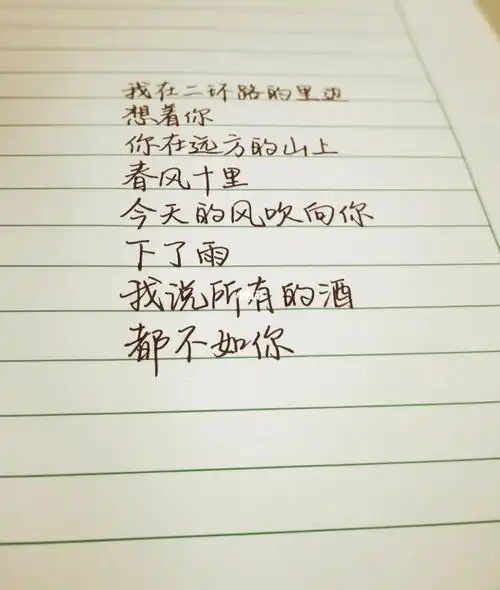 我在二环路的里边
想着你
你在远方的山上
春风十里
今天的风吹向你
下了雨
我说所有的酒
都不如你